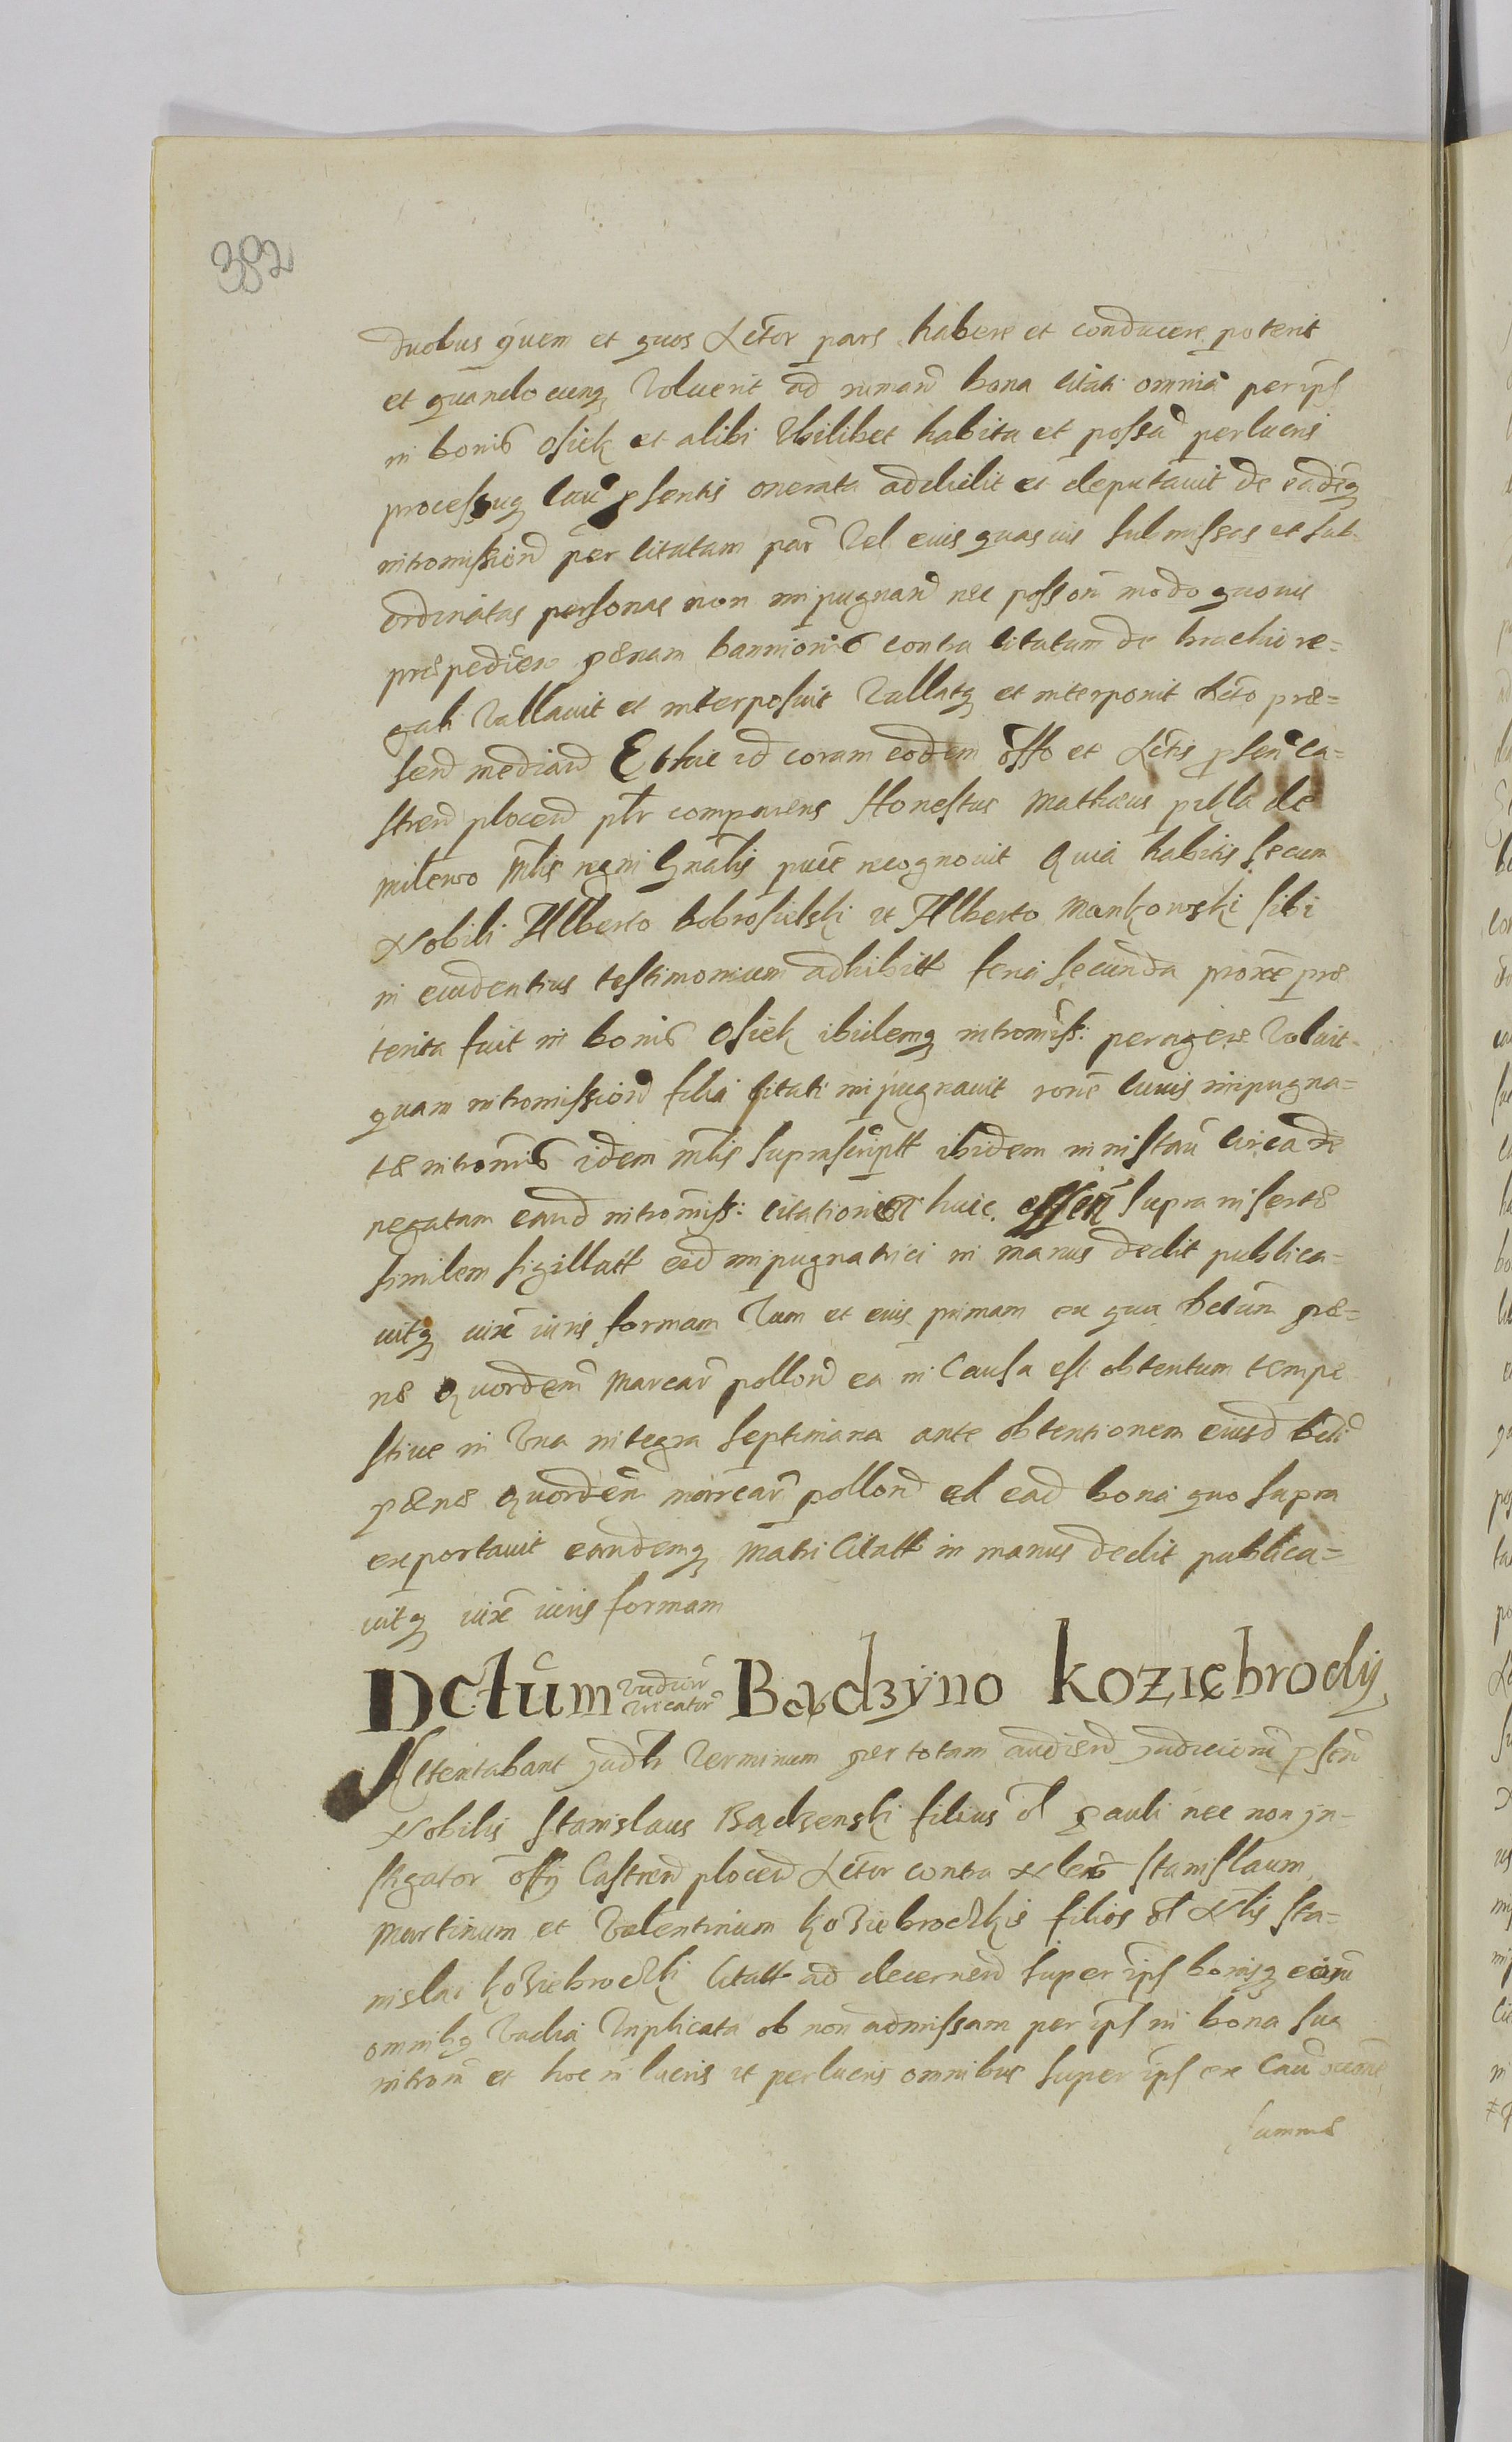 382
duobus quem et quos Actor pars habere et conducere poterit
et quando cunq voluerit ad rumand bona citati omnia per ips
in bonis Osiek et alibi Ubilibet habita et possa perlucris
processuq cau psentis onerata addidit et deputauit de eadeq
intromission per citatam par vel eius quasuis submissas et sub-
ordinatas personas non impugnand nec possom modo quouis
præpedien pænam bannionis contra citatum de brachio re=
gali vallauit et interposuit vallatq et interponit dcto præ=
send mediand Et hic id coram eodem offo et Actis psen ca=
stren plocen plr comparens Honestus Mattheus pilla de
milewo mlis regni Gnalis puce recognouit Quia habitis secum
Nobili Alberto bobrosielski et Alberto Mankowski sibi
in euidentius testimonium adhibitt feria secunda proxe præ
terita fuit in bonis Osiek ibidemq intromiss: peragere voluit
quam intromission filia citati impugnauit rone cuius impugna=
tæ intromis idem mlis suprascriptt ibidem in instan circa de
negatam eand intromiss: citationem huic supra insertæ
similem sigillatt eid impugnatrici in manus dedit publica=
uitq iuxe iuris formam Tum et eius primam ex qua dctum pæ=
næ quordem marcar pollon ea in Causa est obtentum tempe
stiue in vna integra septimana ante obtentionem eiusd dcti
pænæ quorden marcar pollon ad ead bona quo supra
exportauit eandemq matri Citatt in manus dedit publica=
uitq iuxe iuris formam
Dctum vadiorr Bądzÿno koziębrodÿ
Attentabant Judtr Terminum per totam audiend Judiciom psen
Nobilis Stanislaus Bądzenski filius ol Pauli nec non in-
stigator offy Castren plocen Actor contra Nles Stanislaum
Martinum et Valentinum koziebrodzkis filios ol Nlis Sta=
nislai koziebrodzki Citatt ad decernend super ips bonisq eoru
omnibq vadia triplicata ob non admissam per ips in bona sua
introm et hoc in lucris et perlucris omnibus super ips ex Cau
summæ